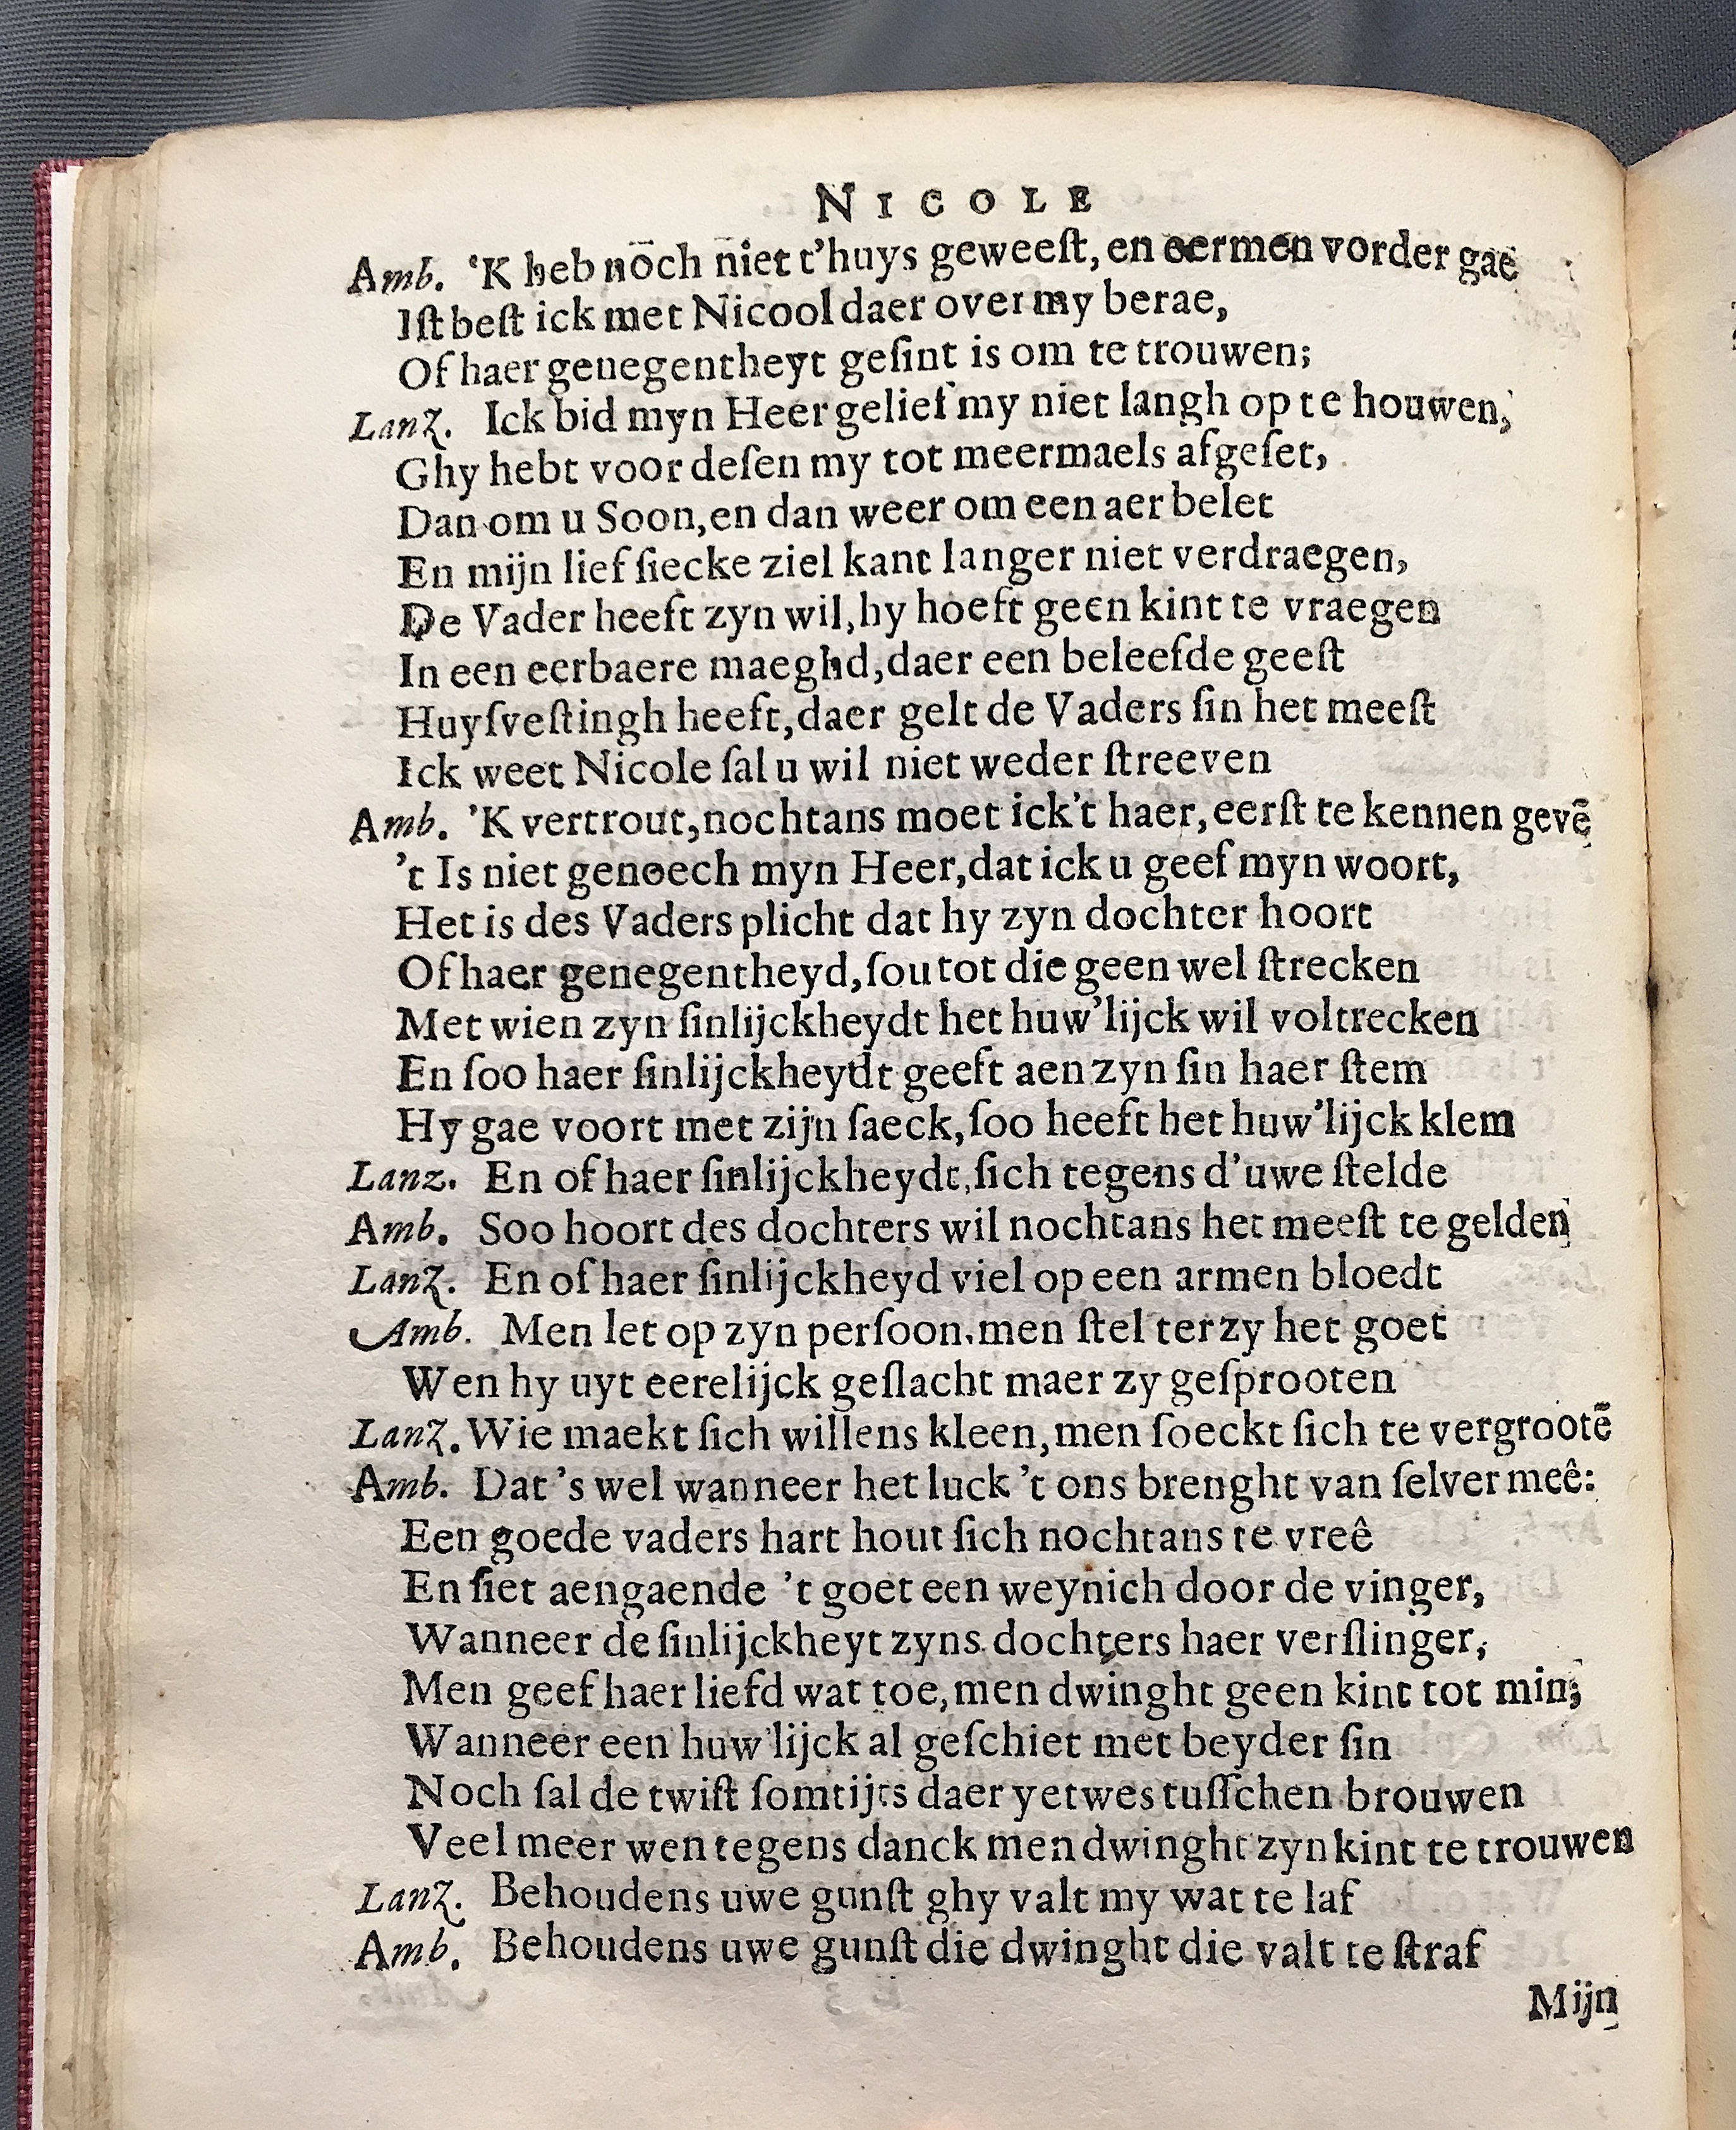 NICOLE
Amb. 'K heb noch niet t'huys geweeſt, en eermen vorder gae
Iſt beſt ick met Nicool daer over my berae,
Of haer genegentheyt geſint is om te trouwen;
Lanz. Ick bid myn Heer gelief my niet langh op te houwen,
Ghy hebt voor deſen my tot meermaels afgeſet,
Dan om u Soon, en dan weer om een aer belet
En mijn lief ſiecke ziel kant langer niet verdraegen,
De Vader heeft zyn wil, hy hoeft geen kint te vraegen
In een eerbaere maeghd, daer een beleefde geeſt
Huyſveſtingh heeft, daer gelt de Vaders ſin het meeſt
Ick weet Nicole ſal u wil niet weder ſtreeven
Amb. 'K vertrout, nochtans moet ick't haer, eerſt te kennen gevē
't Is niet genoech myn Heer, dat ick u geef myn woort,
Het is des Vaders plicht dat hy zyn dochter hoort
Of haer genegentheyd, ſou tot die geen wel ſtrecken
Met wien zyn ſinlijckheydt het huw'lijck wil voltrecken
En ſoo haer ſinlijckheydt geeft aen zyn ſin haer ſtem
Hy gae voort met zijn ſaeck, ſoo heeft het huw'lijck klem
Lanz. En of haer ſinlijckheydt, ſich tegens d'uwe ſtelde
Amb. Soo hoort des dochters wil nochtans het meeſt te gelden
Lanz. En of haer ſinlijckheyd viel op een armen bloedt
Amb. Men let op zyn perſoon. men ſtel ter zy het goet
Wen hy uyt eerelijck geſlacht maer zy geſprooten
Lanz. Wie maekt ſich willens kleen, men ſoeckt ſich te vergrootē
Amb. Dat 's wel wanneer het luck 't ons brenght van ſelver meê:
Een goede vaders hart hout ſich nochtans te vreê
En ſiet aengaende 't goet een weynich door de vinger,
Wanneer de ſinlijckheyt zyns dochters haer verſlinger,
Men geef haer liefd wat toe, men dwinght geen kint tot min;
Wanneer een huw'lijck al geſchiet met beyder ſin
Noch ſal de twiſt ſomtijts daer yetwes tuſſchen brouwen
Veel meer wen tegens danck men dwinght zyn kint te trouwen
Lanz. Behoudens uwe gunſt ghy valt my wat te laf
Amb. Behoudens uwe gunſt die dwinght die valt te ſtraf
Mijn